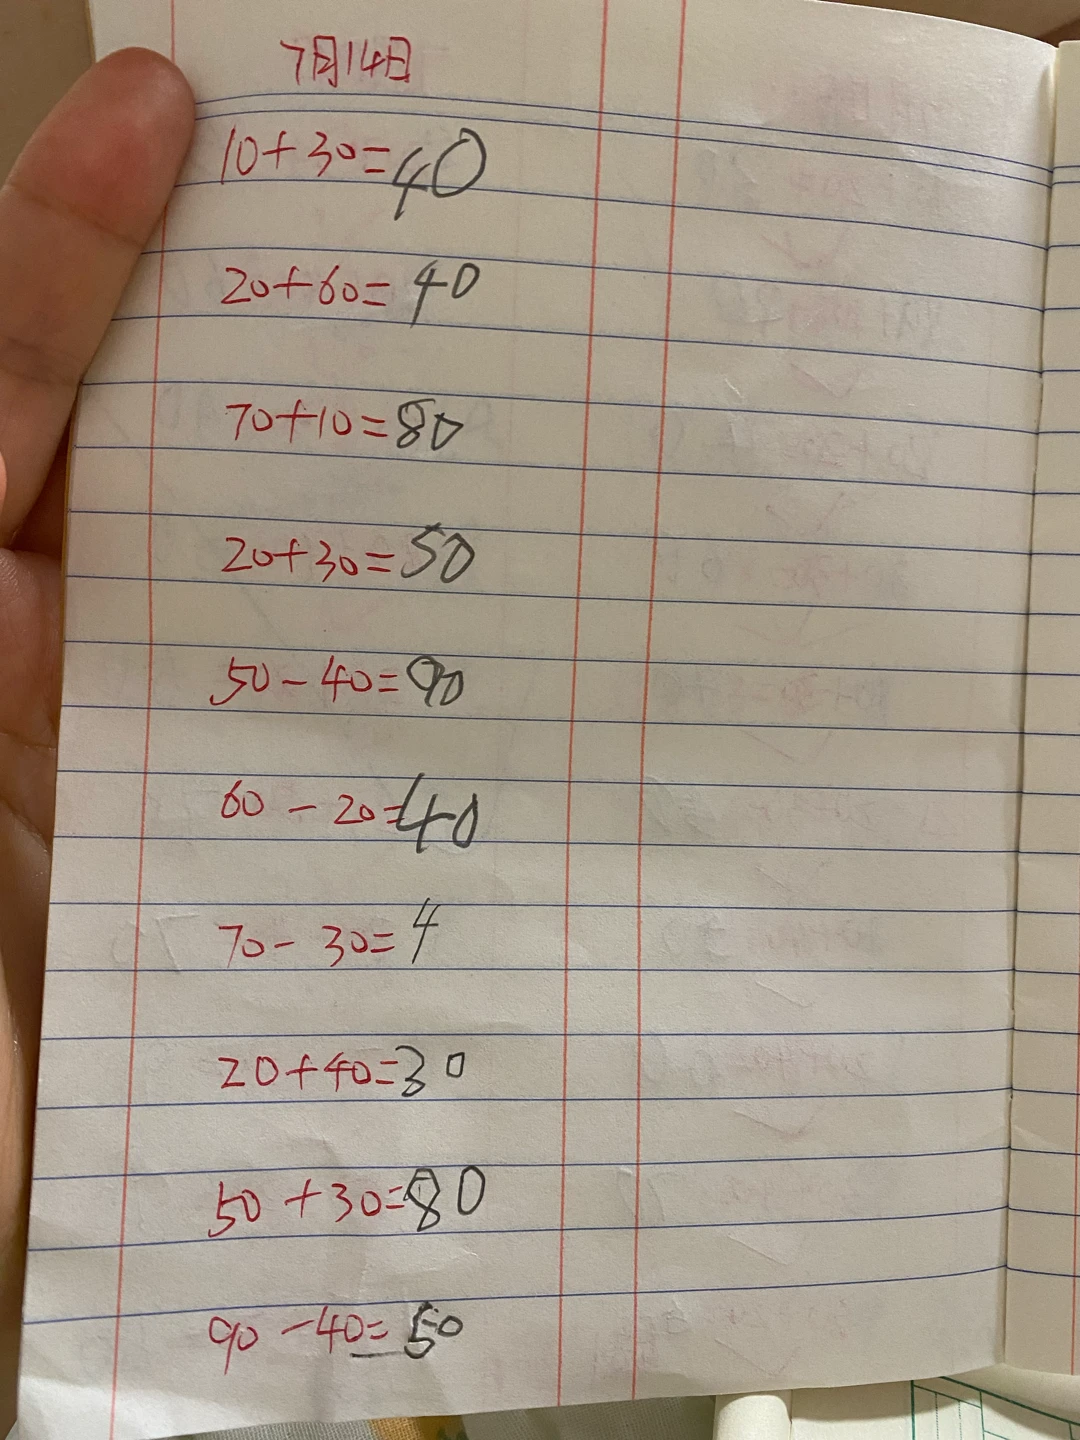 7月14日
10+30=40
20+60=40
70+10=80
20+30=50
50-40=90
60-20=40
70-30=4
20+40=30
50+30=80
90-40=50